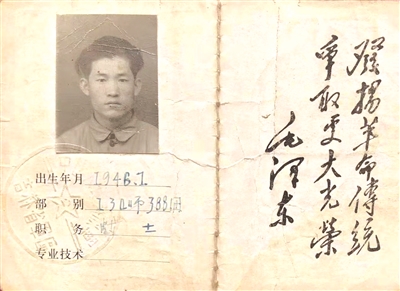 出生年月 1948.1
部别 130师388团
职务 战士
专业技术
發揚革命傳統
爭取更大光榮
毛澤东